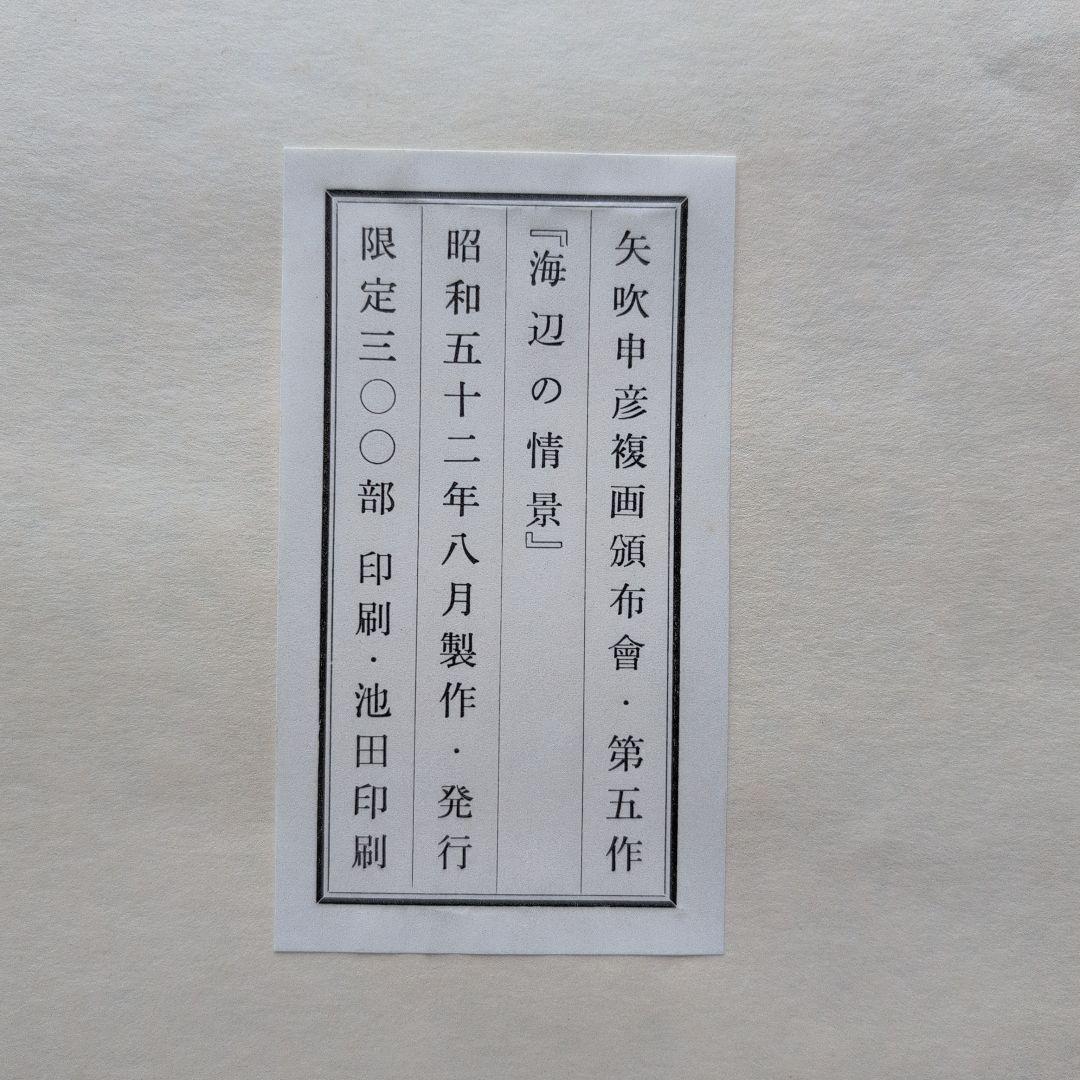 矢吹申彦複画頒布會・第五作
『海辺の情景』
昭和五十二年八月製作・発行
限定三〇〇部 印刷・池田印刷